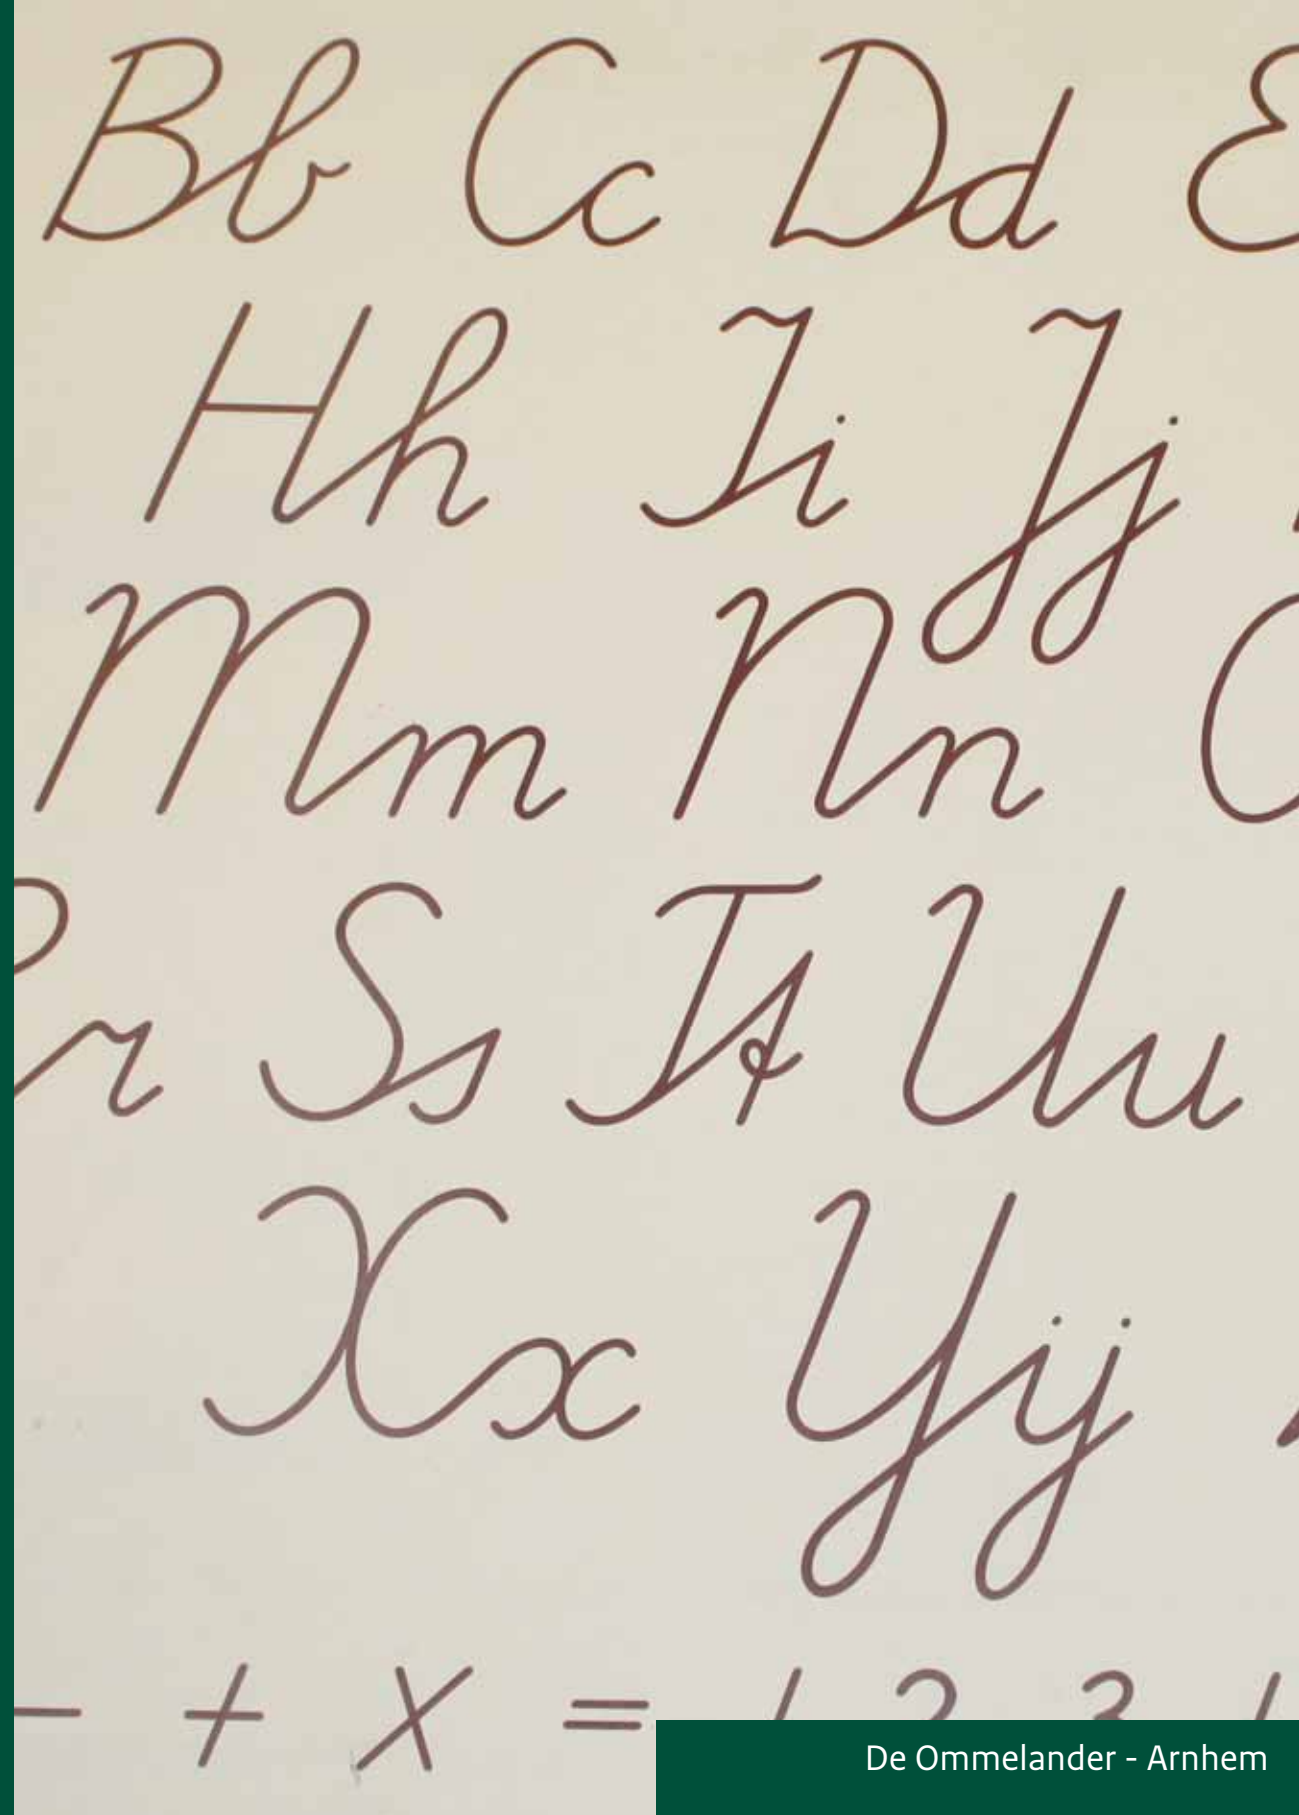 Bb Cc Dd E
Hh Ii Jj
Mm Nn O
Rr Ss Tt Uu
Xx Yij
- + x = 1 2 3
De Ommelander - Arnhem